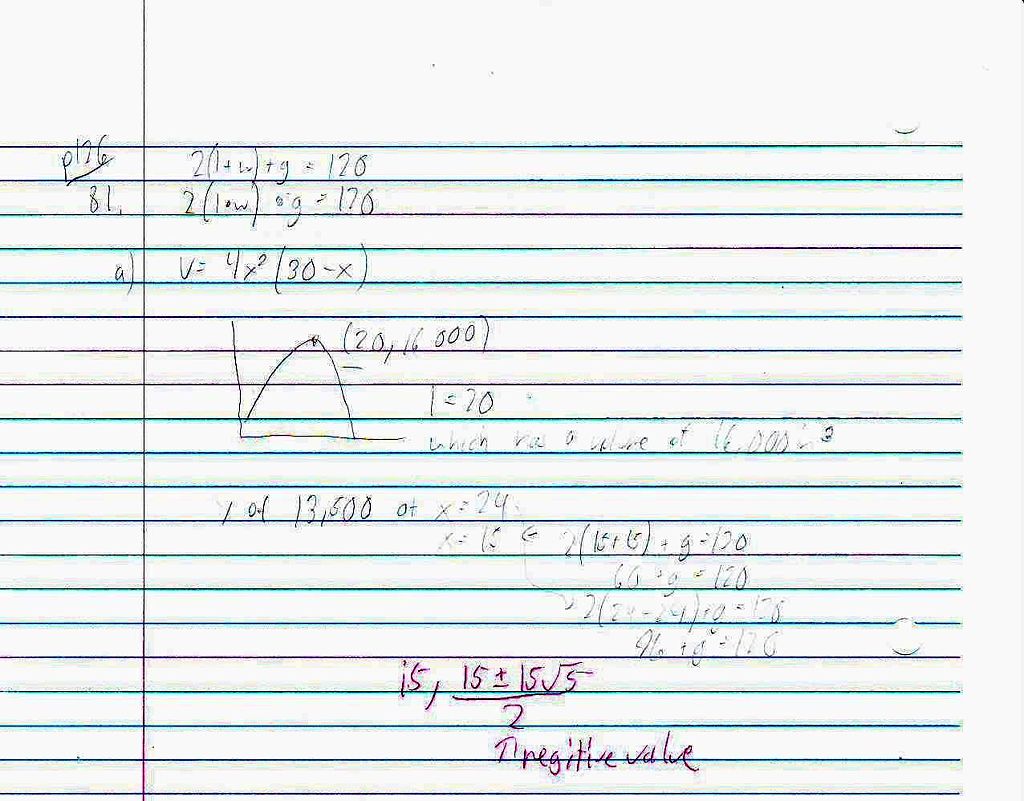 p126
2(l+w)+g = 120
81. 2(l+w) + g = 120
a) V= 4x²(30-x)
(20, 16 000)
l = 20
which has a volume of 16,000 in³
y of 13,500 at x = 24
x = 15 ← 2(15+15) + g = 120
60 + g = 120
2(24+24)+g = 120
96 + g = 120
15, 15 ± 15√5
2
↑ negitive value